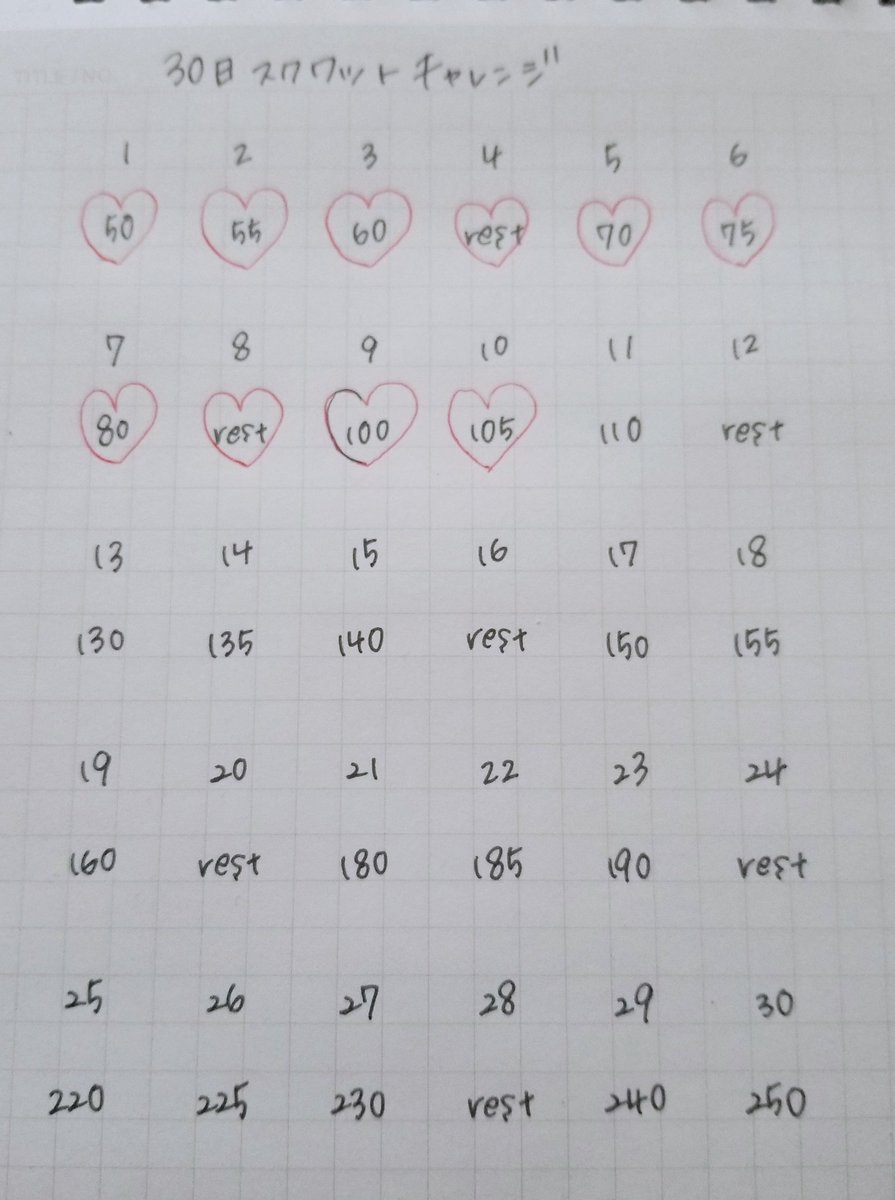 30日スクワットチャレンジ
1 2 3 4 5 6
50 55 60 rest 70 75
7 8 9 10 11 12
80 rest 100 105 110 rest
13 14 15 16 17 18
130 135 140 rest 150 155
19 20 21 22 23 24
160 rest 180 185 190 rest
25 26 27 28 29 30
220 225 230 rest 240 250